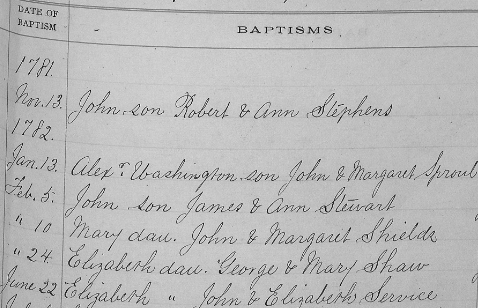 DATE OF BAPTISM
BAPTISMS.
1781.
Nov. 13. John son Robert & Ann Stephens
1782.
Jan. 13. Alexr Washington son John & Margaret Sproul
Feb. 5. John son James & Ann Stewart
" 10 Mary dau. John & Margaret Shields
" 24. Elizabeth dau. George & Mary Shaw
June 22 Elizabeth " John & Elizabeth Service